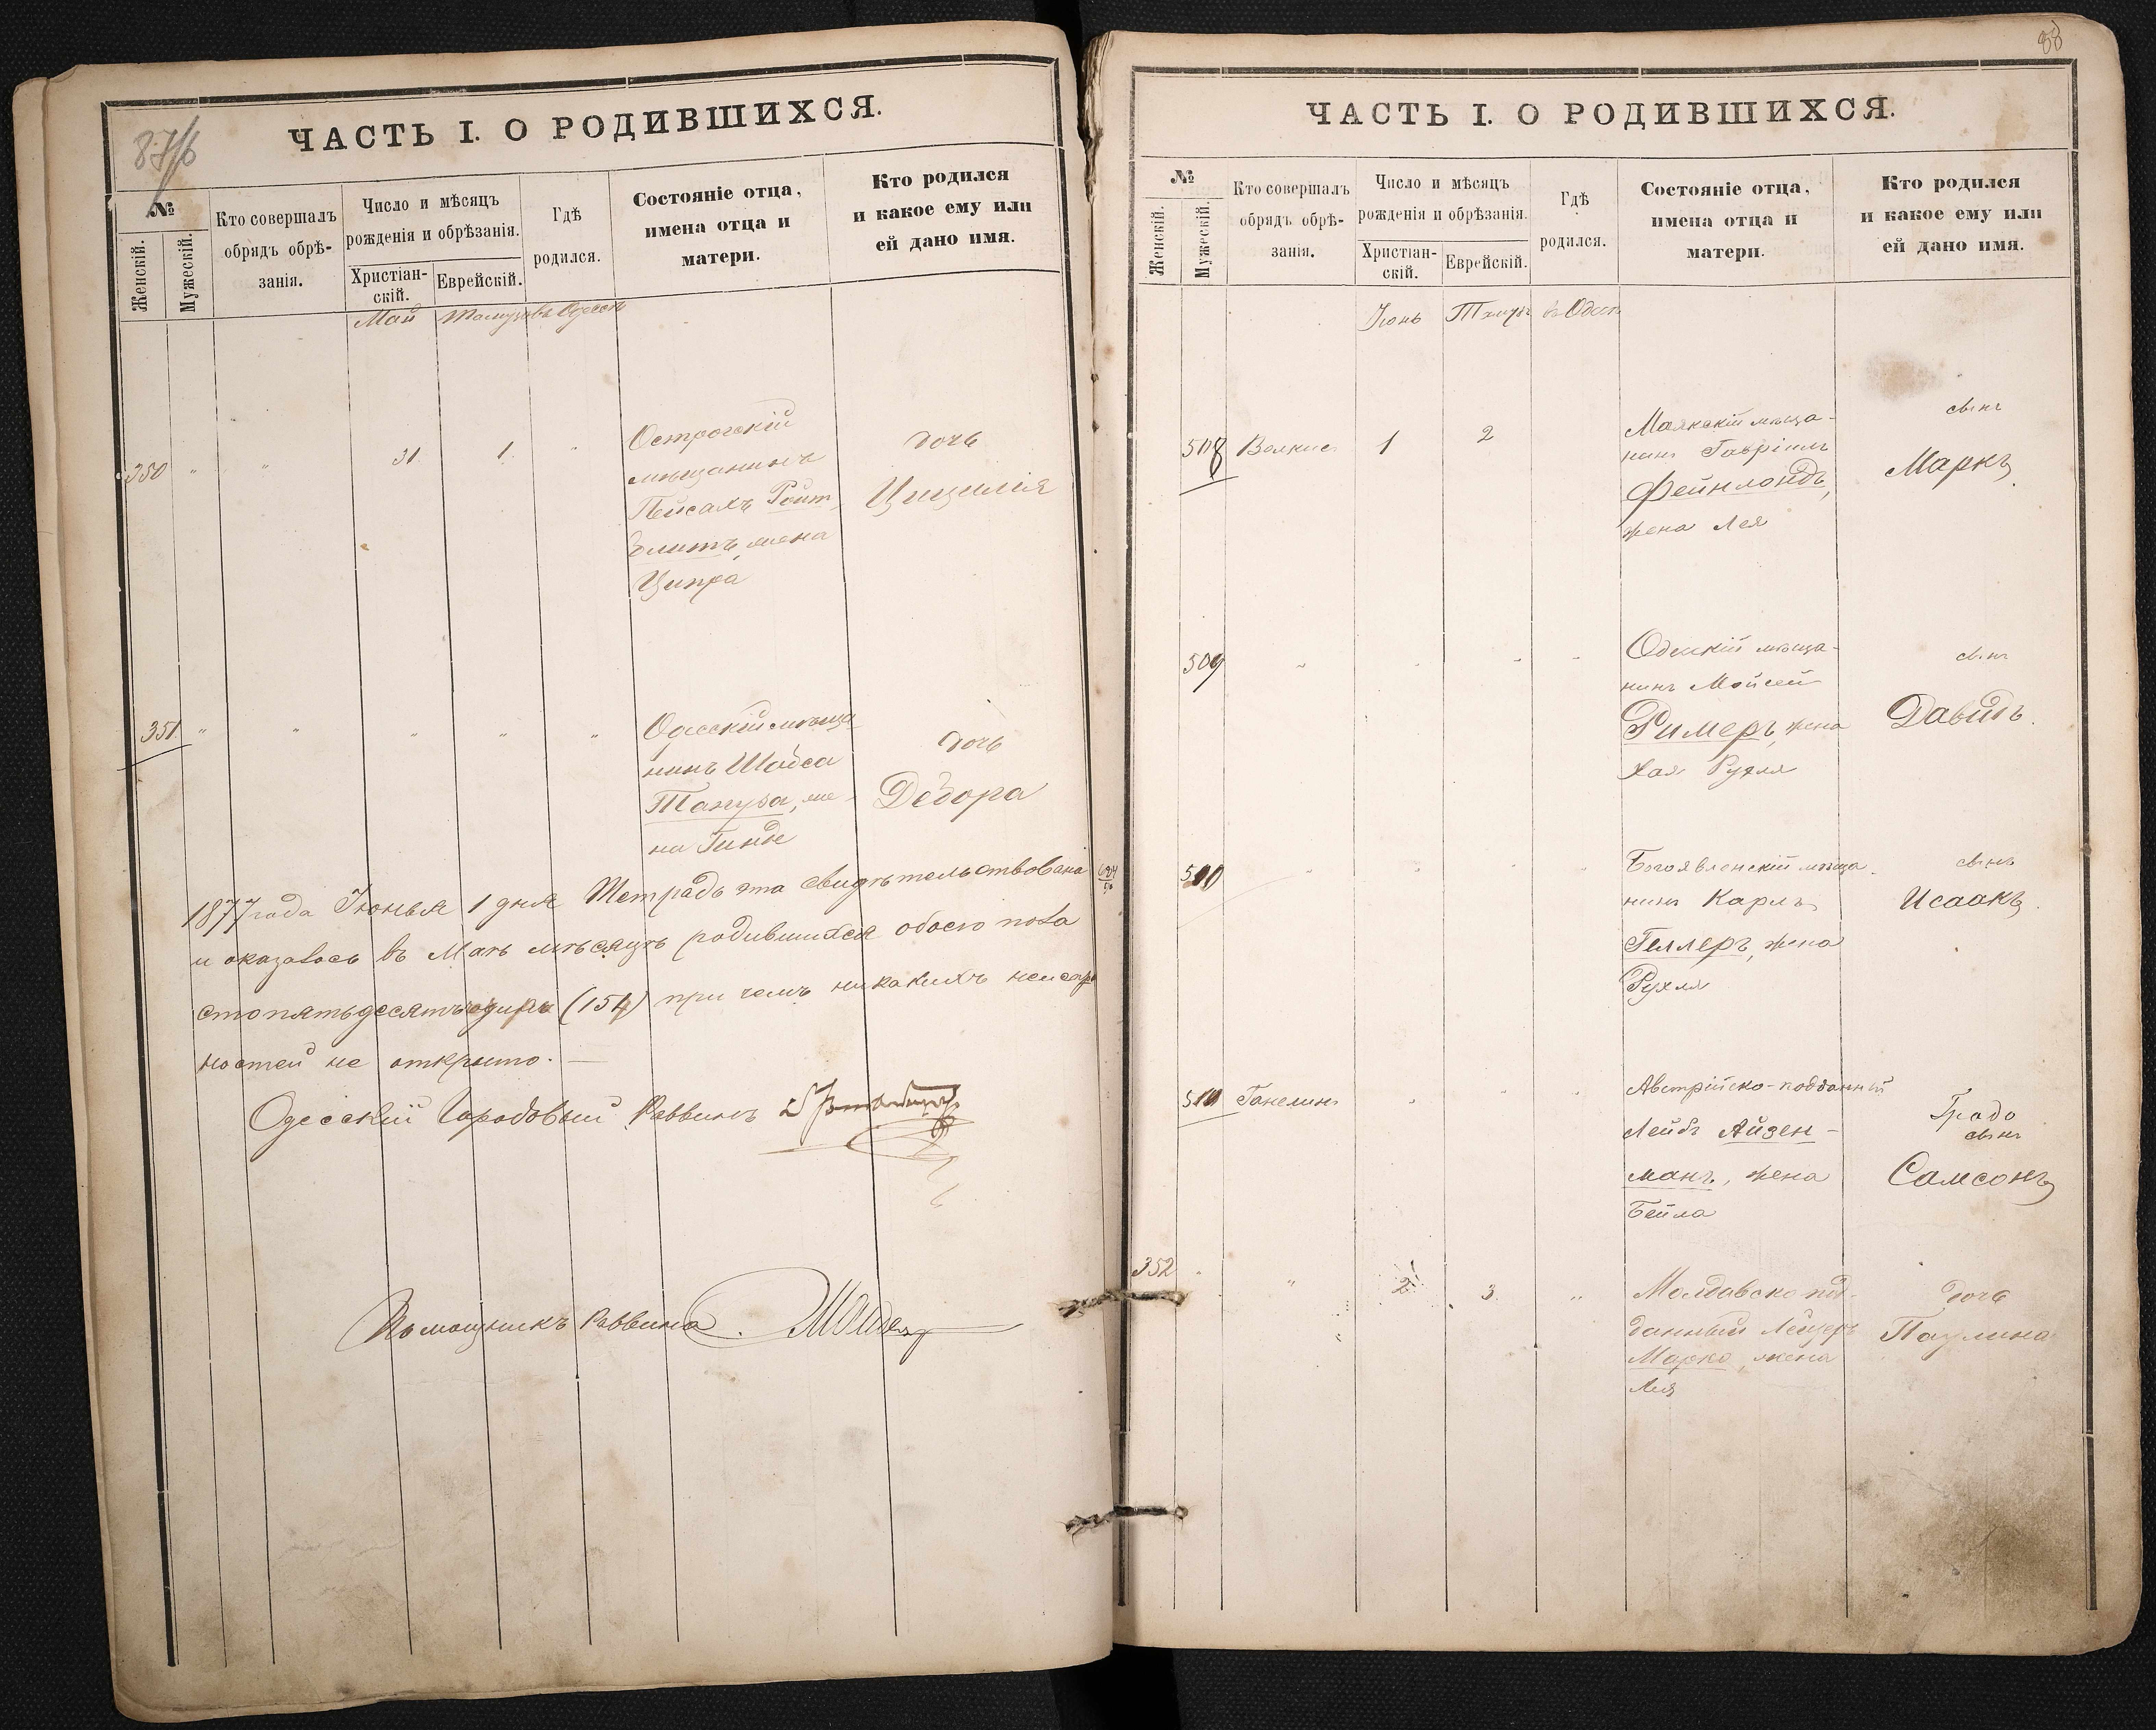 87/б
ЧАСТЬ I. О РОДИВШИХСЯ.
№
Женскій.
Мужескій.
Кто совершалъ
обрядъ обрѣ-
занія.
Число и мѣсяцъ
рожденія и обрѣзанія.
Христіан-
скій.
Еврейскій.
Гдѣ
родился.
Состояніе отца,
имена отца и
матери.
Кто родился
и какое ему или
ей дано имя.
Май Тамузъ въ Одессѣ
350 " " 31 1 "
Острогскій
мѣщанинъ
Пейсахъ Ройт
жена
Ципра
дочь
Цицилія
351 " " " " "
Одесскій мѣща
нинъ Шайса
же-
на Гинде
дочь
Дебора
1877 года Іюнья 1 дня Тетрадь эта свидѣтельствована
и оказалось въ Маѣ мѣсяцѣ родившихся обоего пола
сто пятьдесятъ (154) при чемъ никакихъ неиспр
ностей не открыто. —
Одесскій Городовый Раввинъ
Помощникъ Раввина
88
ЧАСТЬ I. О РОДИВШИХСЯ.
№
Женскій.
Мужескій.
Кто совершалъ
обрядъ обрѣ-
занія.
Число и мѣсяцъ
рожденія и обрѣзанія.
Христіан-
скій.
Еврейскій.
Гдѣ
родился.
Состояніе отца,
имена отца и
матери.
Кто родился
и какое ему или
ей дано имя.
Іюнь Тамузъ въ Одессѣ
508 1 2
Маякскій мѣща-
нинъ Гавріилъ
Фейнлондъ,
жена Лея
сынъ
Маркъ
509 " " " "
Одесскій мѣща-
нинъ Мойсей
Римеръ, жена
Хая Рухля
сынъ
Давидъ.
510 " " " "
Богоявленскій мѣща
нинъ Карлъ
Геллеръ, жена
Рухля
сынъ
Исаакъ.
511 Ганелинъ " " "
Австрійско-подданный
Лейбъ Айзен-
манъ, жена
Бейла
сынъ
Самсонъ
352 " " 2 3 "
Молдавско под-
данный Лейзеръ
Марко, жена
Лея
дочь
Паулина